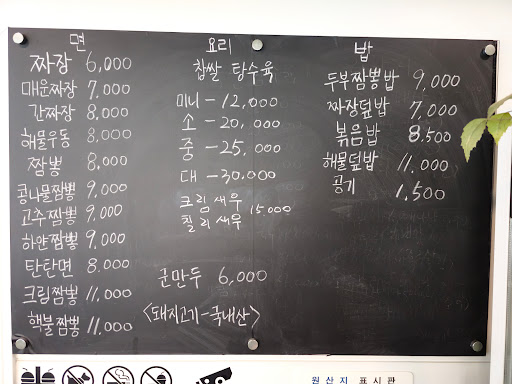 면
짜장 6,000
매운짜장 7,000
간짜장 8,000
해물우동 8,000
짬뽕 8,000
콩나물짬뽕 9,000
고추짬뽕 9,000
하얀짬뽕 9,000
탄탄면 8.000
크림짬뽕 11,000
핵불짬뽕 11,000
요리
찹쌀 탕수육
미니 - 12,000
소 - 20,000
중 - 25,000
대 - 30.000
크림새우
칠리새우 15,000
군만두 6,000
<돼지고기-국내산>
밥
두부짬뽕밥 9,000
짜장덮밥 7,000
볶음밥 8.500
해물덮밥 11,000
공기 1,500
원산지 표시판